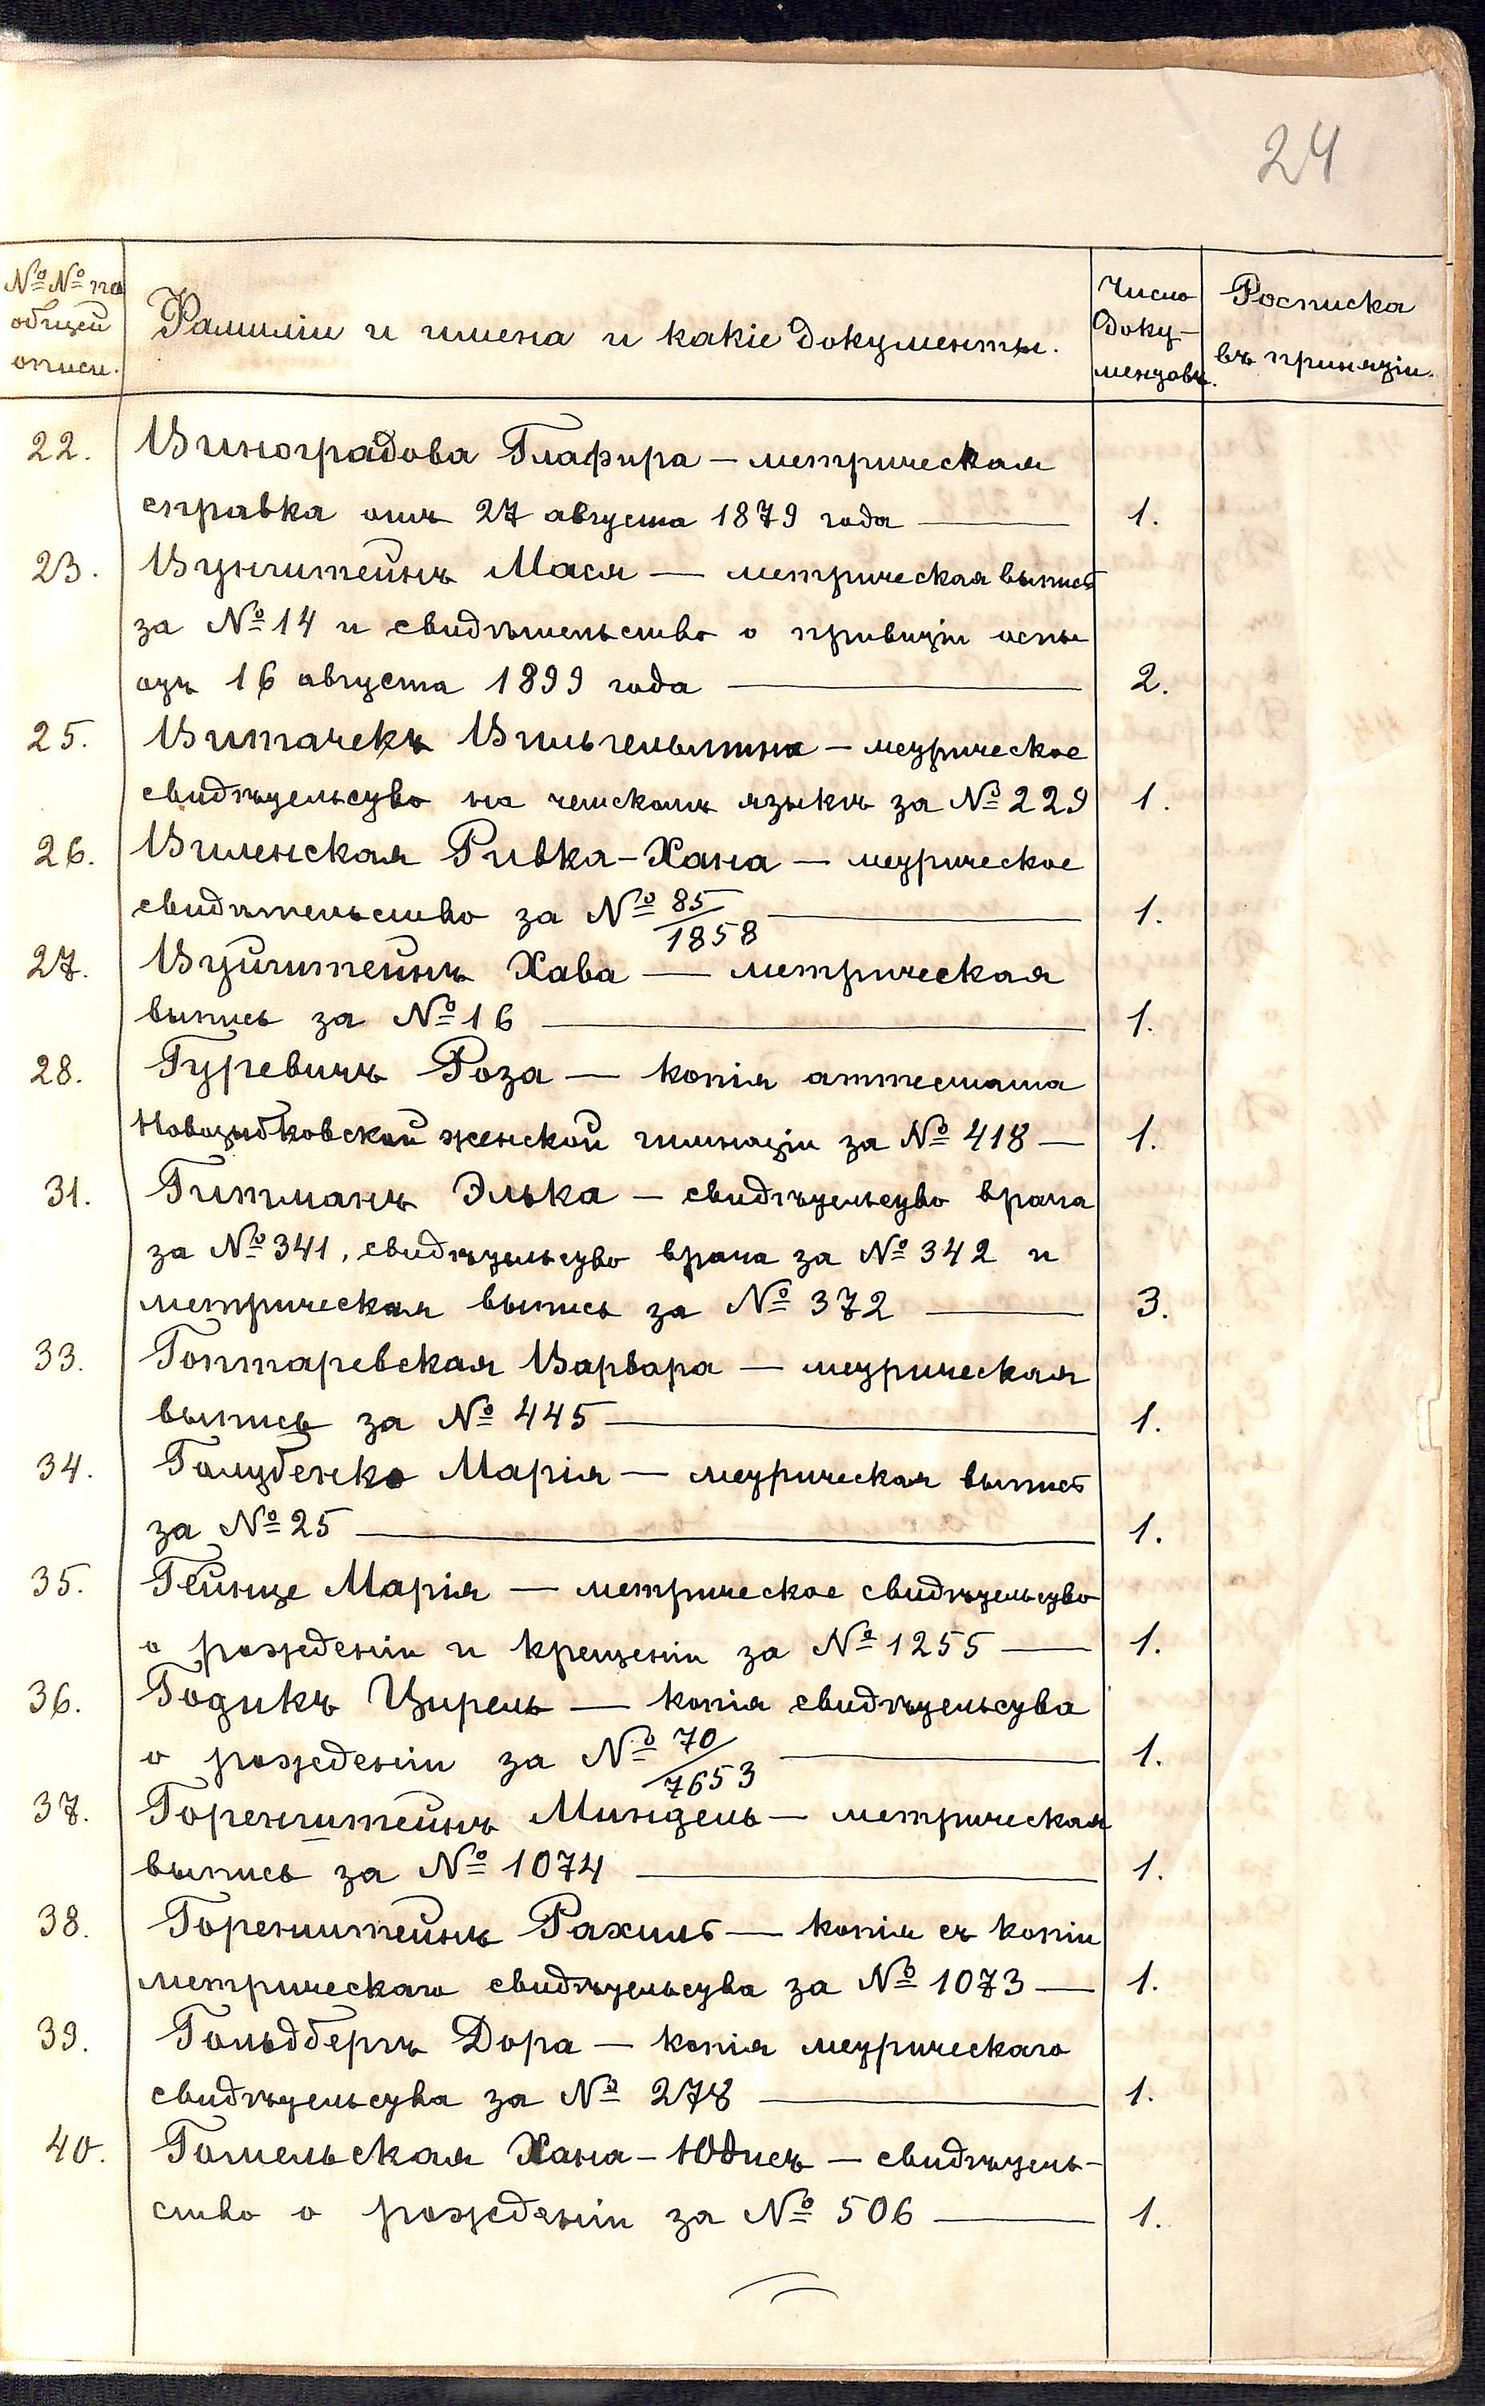 24
№ № по
общей
описи.
Фамиліи и имена и какіе документы.
Число
доку-
ментовъ.
Росписка
въ принятіи.
22. Виноградова Глафира — метрическая
справка отъ 27 августа 1879 года — 1.
23. Вунштейнъ Мася — метрическая выпись
за № 14 и свидѣтельство о привитіи оспы
отъ 16 августа 1899 года — 2.
25. Витачекъ Вильгельмина — метрическое
свидѣтельство на чешскомъ языкѣ за № 229 1.
26. Виленская Ривка-Хана — метрическое
свидѣтельство за № 85/1858 — 1.
27. Вуйштейнъ Хава — метрическая
выпись за № 16 — 1.
28. Гуревичъ Роза — копія аттестата
Новозыбковской женской гимназіи за № 418 — 1.
31. Гитманъ Элька — свидѣтельство врача
за № 341, свидѣтельство врача за № 342 и
метрическая выпись за № 372 — 3.
33. Гоптаревская Варвара — метрическая
выпись за № 445 — 1.
34. Голубенко Марія — метрическая выпись
за № 25 — 1.
35. Гейнце Марія — метрическое свидѣтельство
о рожденіи и крещеніи за № 1255 — 1.
36. Годикъ Цирель — копія свидѣтельства
о рожденіи за № 70/7653 — 1.
37. Горенштейнъ Миндель — метрическая
выпись за № 1074 — 1.
38. Горенштейнъ Рахиль — копія съ копіи
метрическаго свидѣтельства за № 1073 — 1.
39. Гольдбергъ Дора — копія метрическаго
свидѣтельства за № 278 — 1.
40. Гомельская Хана-Юдисъ — свидѣтель-
ство о рожденіи за № 506 — 1.